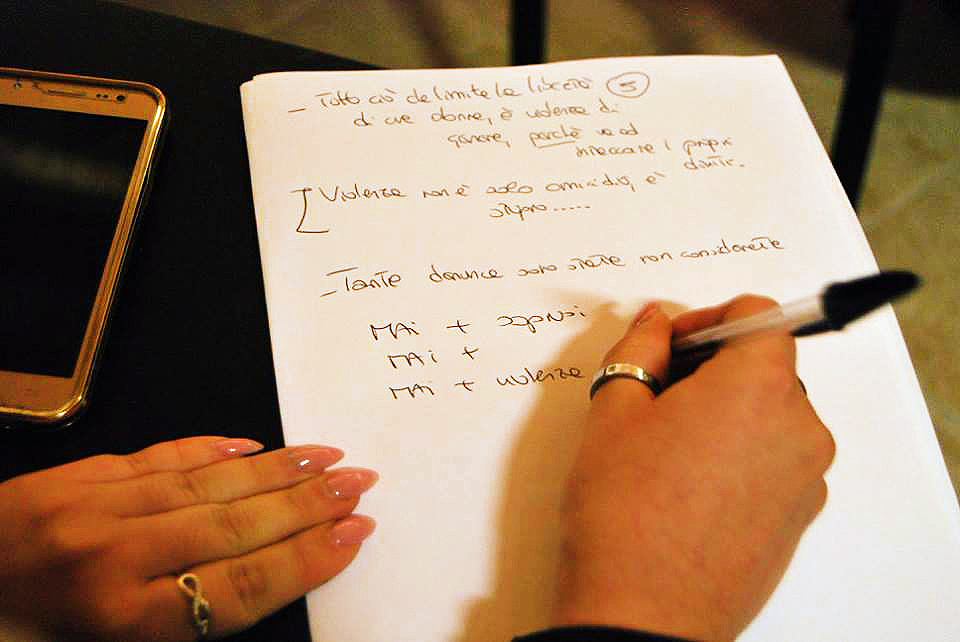 - Tutto ciò che limita la libertà ③
di una donna, è violenza di
genere, perchè va ad
intaccare i propri
diritti.
Violenza non è solo omicidio, è
stupro.....
- Tante denunce sono state non considerate
MAi +
MAi +
MAi + violenza